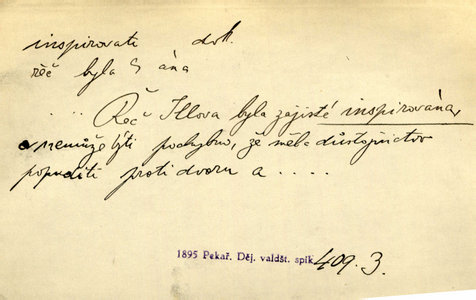 inspirovati dok.
řěč byla ~ ána
.. Řeč Illova byla zajisté inspirována,
a nemůže býti pochybno, že měla důstojnictvo
popuditi proti dvoru a .....
1895 Pekař. Děj. valdšt. spik. 409.3.